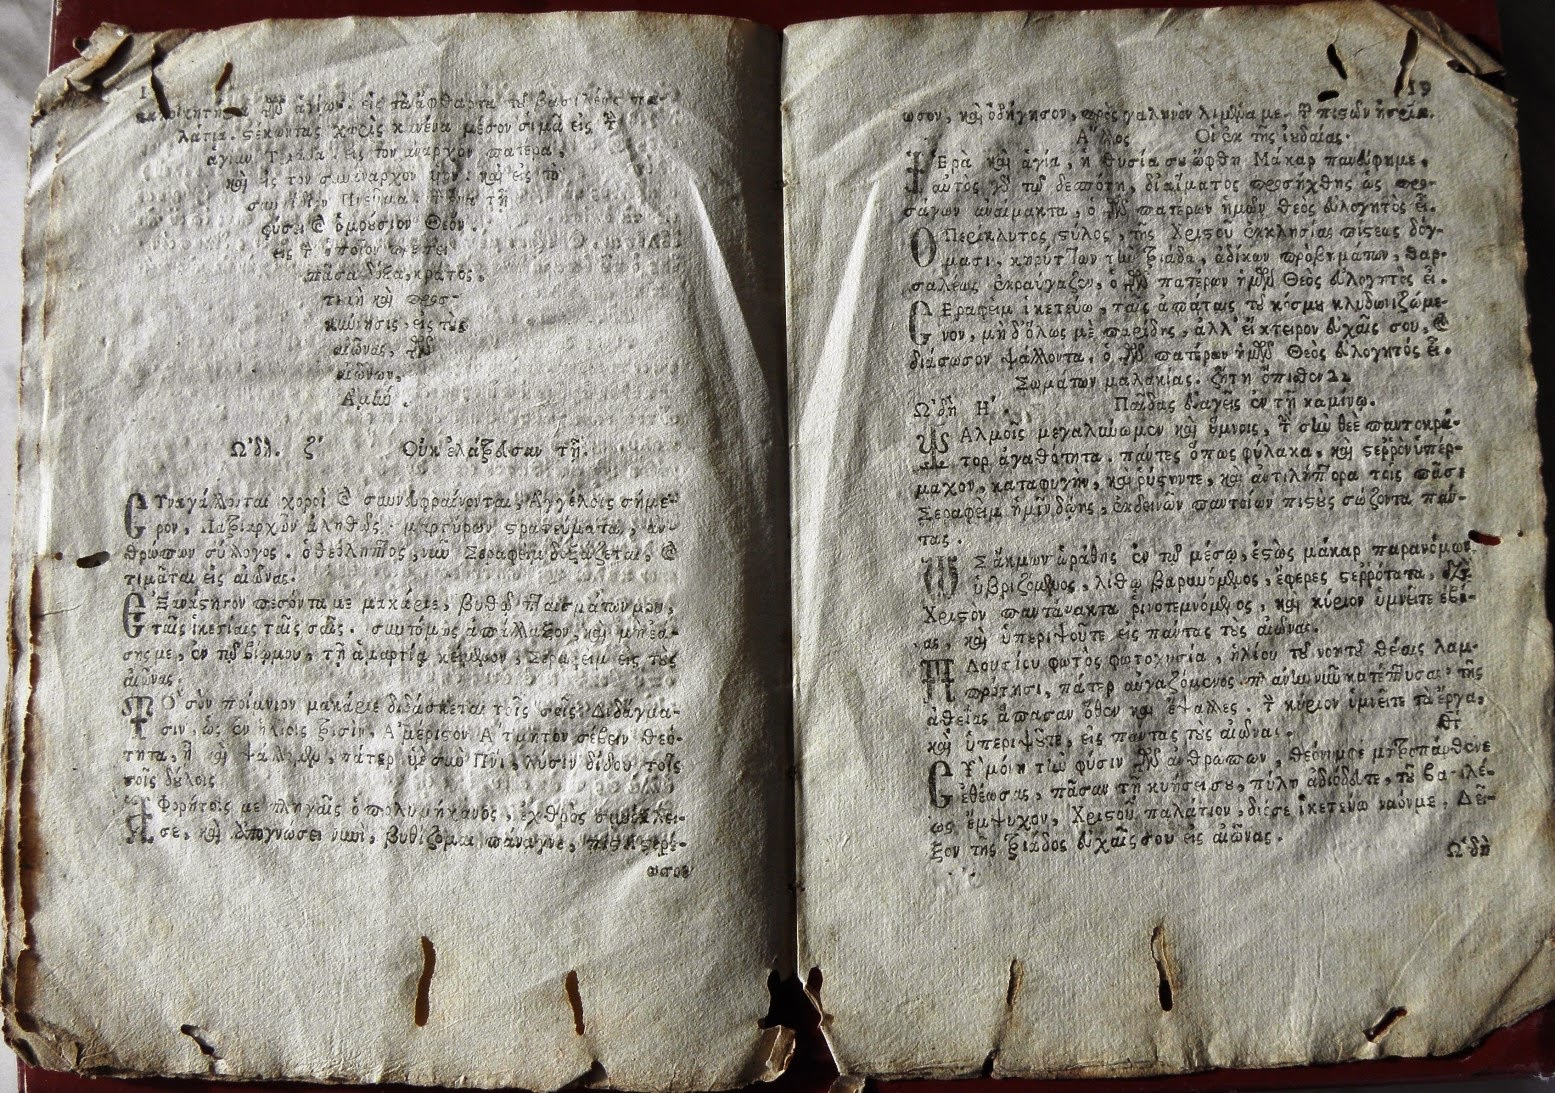 λατια. στέκωντας χωρὶς κανένα μέσον σιμὰ εἰς τ
ἁγίαν Τριάδα. εἰς τὸν ἄναρχον πατέρα,
καὶ εἰς τὸν συνάναρχον υἱόν. καὶ εἰς τὸ
Πνεῦμα. τῇ
φύσει καὶ ὁμοούσιον Θεόν.
εἰς τ, ὁποῖον πρέπει
πᾶσα δόξα, κράτος,
τιμὴ καὶ προσ-
κύνησις, εἰς τοὺς
αἰῶνας, τῶν
αἰώνων.
Ἀμήν.
Ὠδὴ. ζ΄ Οὐκ ἐλάτρευσαν τῇ.
ΣΥναγάλλονται χοροὶ καὶ συνευφραίνονται, Ἀγγέλοις σήμε-
ρον, Ταξιαρχῶν ἀληθῶς. μαρτύρων στρατεύματα, ἀν-
θρώπων σύλλογος. ὁ θεόληπτος, νῦν Σεραφεὶμ δοξάζεται, καὶ
τιμᾶται εἰς αἰῶνας.
ἘΞανάστησον πεσόντα με μακάριε, βυθοῦ πταισμάτων μου,
ταῖς ἱκεσίαις ταῖς σαῖς. συντόμως ἀπάλλαξον, καὶ μὴ ἐά-
σῃς με, ἐν τῇ, τῇ ἁμαρτίᾳ Σεραφεὶμ εἰς τοὺς
αἰῶνας
ΤΟ σὸν ποίμνιον μακάριε διδάσκεται ταῖς σαῖς διδάγμα-
σιν, ὡς ἐν τρισὶν, Ἀμέριστον Ἄτμητον σέβειν Θεό-
τητα, ᾗ καὶ ψάλλομεν, πάτερ λύσιν δίδου τοῖς
τοῖς δούλοις
ἈΦορήτοις με πληγαῖς ὁ πολυμήχανος, ἐχθρὸς
σε, καὶ ἀπογνώσει νυνὶ, βυθίζομαι πάναγνε, στερέ-
ωσον
19
ωσον, καὶ ὁδήγησον, πρὸς γαληνὸν λιμένα με. τ πιστῶν
Ἄλλος Οἱ ἐκ τῆς ἰουδαίας.
ἹΕρὰ καὶ ἁγία, ἡ θυσία σου ὤφθη Μάκαρ πανεύφημε,
αὐτὸς γὰρ τῷ δεσπότῃ, δι' αἵματος προσήχθης ὡς προ-
σάγων ἀναίμακτα, ὁ τῶν πατέρων ἡμῶν θεὸς εὐλογητὸς εἶ.
Ὁ Περίκλυτος στύλος, τῆς Χριστοῦ ἐκκλησίας πίστεως δόγ-
μασι, κηρύττων τὴν τριάδα, ἀδίκων προβλημάτων, θαρ-
σαλέως ἐκραύγαζεν, ὁ τῶν πατέρων ἡμῶν Θεὸς εὐλογητὸς εἶ.
ΣΕραφεὶμ ἱκετεύω, ταῖς ἀπάταις τοῦ κόσμου κλυδωνιζόμε-
νον, μὴ δ' ὅλως με παρίδῃς, ἀλλ' οἴκτειρον εὐχαῖς σου, καὶ
διάσωσον ψάλλοντα, ὁ τῶν πατέρων ἡμῶν Θεὸς εὐλογητὸς εἶ.
Σωμάτων μαλακίας. ζήτη ὄπισθεν 22
Ὠδὴ Η΄. Παῖδας εὐαγεῖς ἐν τῇ καμίνῳ.
ΨΑλμοῖς μεγαλύνωμεν καὶ ὕμνοις, τ σὴν θεὲ παντοκρά-
τορ ἀγαθότητα. πάντες ὅπως φύλακα, καὶ στεῤῥὸν ὑπέρ-
μαχον, καταφυγὴν, καὶ ῥύστην τε, καὶ ἀντιλήπτορα τοῖς πᾶσι
Σεραφεὶμ ἡμῖν δώῃς, ἐκ δεινῶν παντοίων πιστοὺς σώζοντα πάν-
τας.
ὩΣ ἄκμων ὡράθης ἐν τῷ μέσῳ, ἑστὼς μάκαρ παρανόμων
ὑβριζόμενος, λίθῳ βαρυνόμενος, ἔφερες στεῤῥότατα, διὰ
Χριστὸν παντάνακτα ῥινοτεμνόμενος, καὶ κύριον ὑμνεῖτε
καὶ ὑπερυψοῦτε εἰς πάντας τοὺς αἰῶνας.
ΠΛουσίου φωτὸς φωτοχυσία, ἡλίου τοῦ νοητοῦ θέαις λαμ-
πρότησι, πάτερ αὐγαζόμενος πλάνην κατέπτυσας τῆς
ἀθεΐας ἅπασαν ὅθεν καὶ ἔψαλλες. τ κύριον ὑμνεῖτε τὰ ἔργα,
καὶ ὑπερυψοῦτε, εἰς πάντας τοὺς αἰῶνας.
ΣΥ μόνη τὴν φύσιν τῶν ἀνθρώπων, θεόνυμφε μητροπάρθενε
ἐθέωσας, πᾶσαν τῇ κυήσει σου, πύλη ἀδιόδευτε, τοῦ βασιλέ-
ως ἔμψυχον, Χριστοῦ παλάτιον, διό σε ἱκετεύω ναόν με, Δεῖ-
ξον τῆς τριάδος εὐχαῖς σου εἰς αἰῶνας.
Ὠδὴ